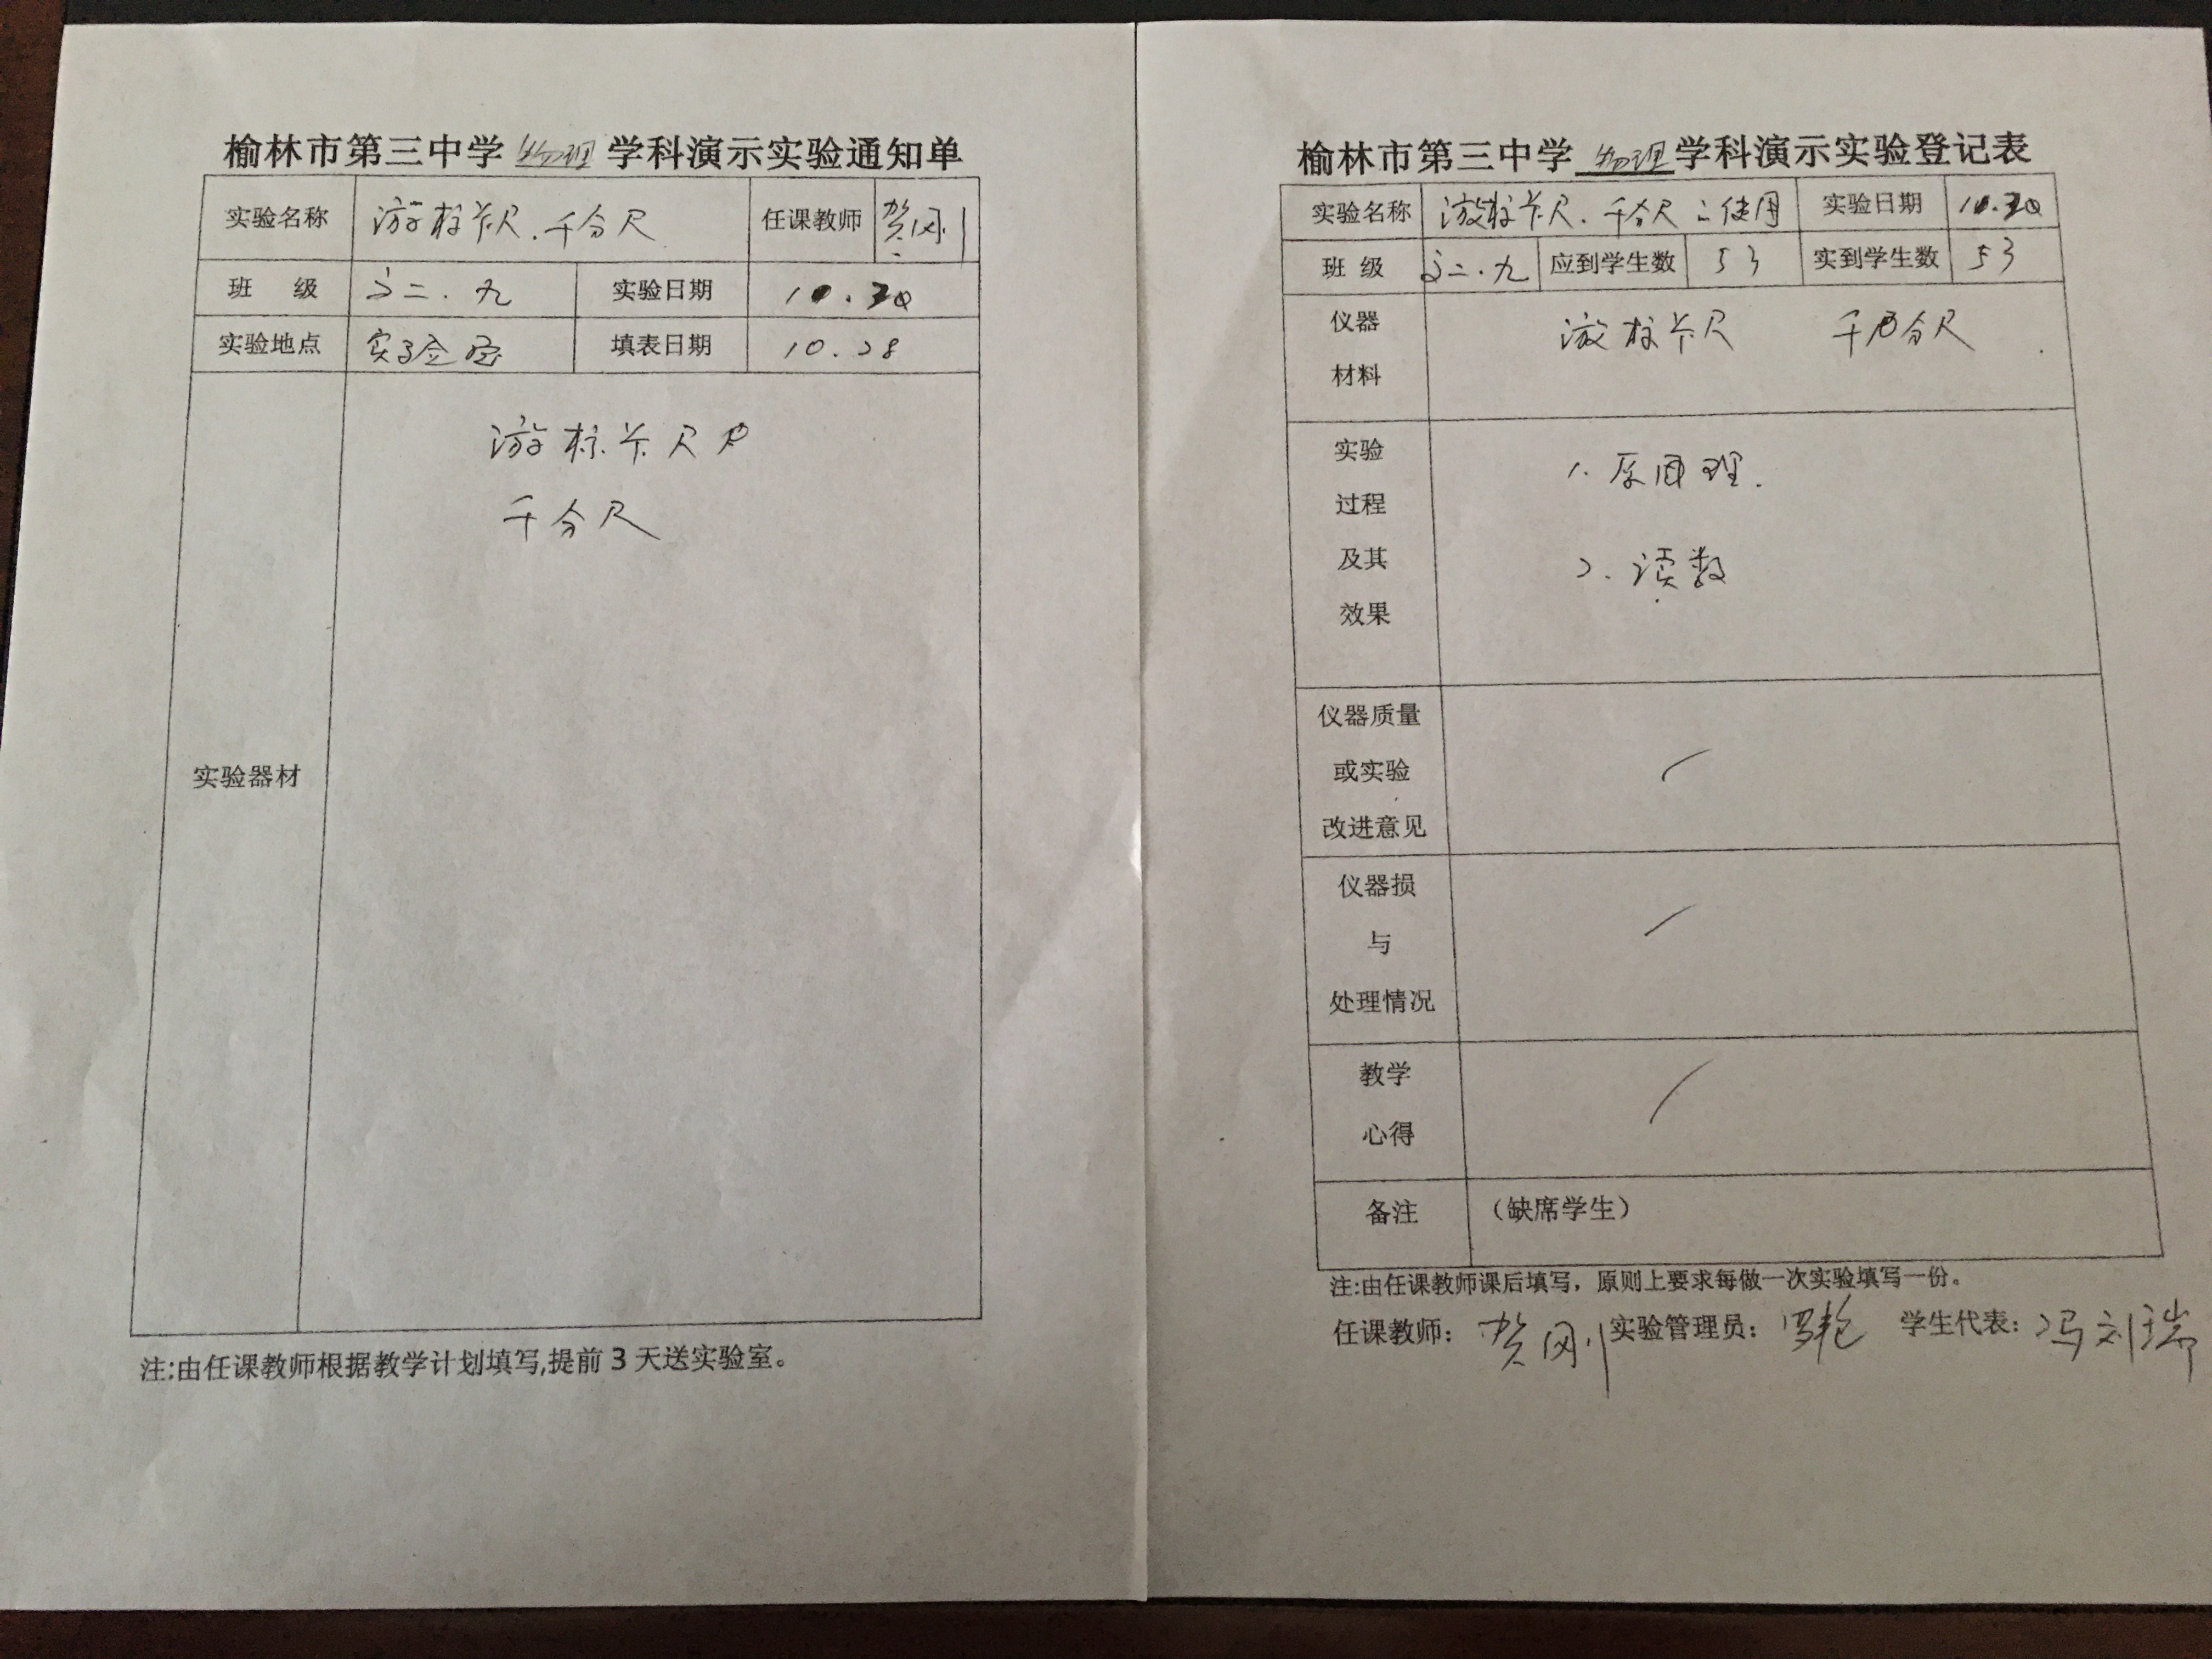 榆林市第三中学 物理 学科演示实验通知单
实验名称 游标卡尺.千分尺 任课教师 贺刚
班 级 高二.九 实验日期 10.30
实验地点 实验室 填表日期 10.28
实验器材
游标卡尺
千分尺
注:由任课教师根据教学计划填写,提前3天送实验室。
榆林市第三中学 物理 学科演示实验登记表
实验名称 游标卡尺.千分尺的使用 实验日期 10.30
班 级 高二.九 应到学生数 53 实到学生数 53
仪器
材料
游标卡尺 千分尺
实验
过程
及其
效果
1.原理.
2.读数
仪器质量
或实验
改进意见
仪器损
与
处理情况
教学
心得
备注 (缺席学生)
注:由任课教师课后填写,原则上要求每做一次实验填写一份。
任课教师: 贺刚 实验管理员: 学生代表: 冯刘瑞